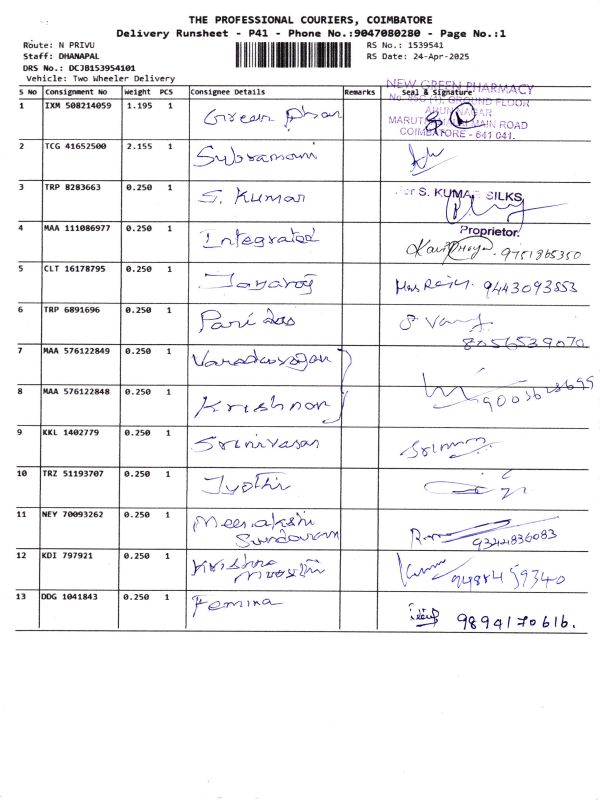 THE PROFESSIONAL COURIERS, COIMBATORE
Delivery Runsheet - P41 - Phone No.:9047080280 - Page No.:1
Route: N PRIVU
RS No.: 1539541
Staff: DHANAPAL
RS Date: 24-Apr-2025
DRS No.: DCJB153954101
Vehicle: Two Wheeler Delivery
S No Consignment No Weight PCS Consignee Details Remarks Seal & Signature
NEW GREEN PHARMACY
GROUND FLOOR
MAIN ROAD
COIMBATORE - 641 041.
1 IXM 508214059 1.195 1 Green Phar
2 TCG 41652500 2.155 1 Subramani
3 TRP 8283663 0.250 1 S. Kumar
For S. KUMAR SILKS
Proprietor.
4 MAA 111086977 0.250 1 Integrated 9751865350
5 CLT 16178795 0.250 1 Jayaraj 9443093853
6 TRP 6891696 0.250 1 Pari das
8056539070
7 MAA 576122849 0.250 1 Varadarajan
8 MAA 576122848 0.250 1 Krishnan
9 KKL 1402779 0.250 1 Srinivasan
10 TRZ 51193707 0.250 1 Jyothi
11 NEY 70093262 0.250 1 Meenakshi
Sundaram 9344836083
12 KDI 797921 0.250 1 Krishna
Moorthi 9488459340
13 DDG 1041843 0.250 1 Femina 9894170616.